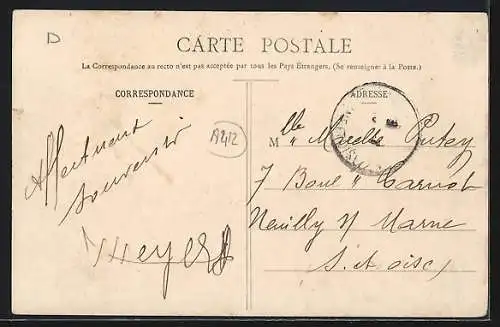 D
CARTE POSTALE
La Correspondance au recto n'est pas acceptée par tous les Pays Etrangers. (Se renseigner à la Poste.)
CORRESPONDANCE
ADRESSE
Affectueux
souvenir
A412
Mlle Marcelle
7 Boul d Carnot
Neuilly s/ Marne
S. et oise